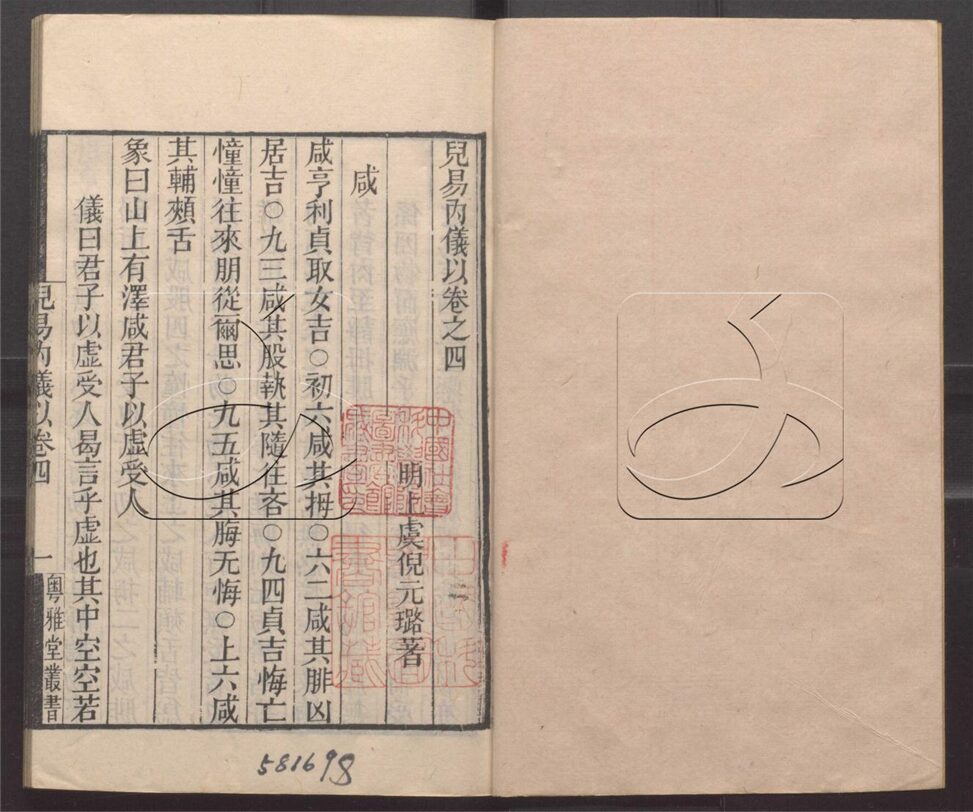 兒易內儀以卷之四
明上虞倪元璐著
咸
咸亨利貞取女吉○初六咸其拇○六二咸其腓凶
居吉○九三咸其股執其隨往吝○九四貞吉悔亡
憧憧往來朋從爾思○九五咸其脢无悔○上六咸
其輔頰舌
象曰山上有澤咸君子以虛受人
儀曰君子以虛受人曷言乎虛也其中空空若
兒易內儀以卷四
一
粵雅堂叢書
581698